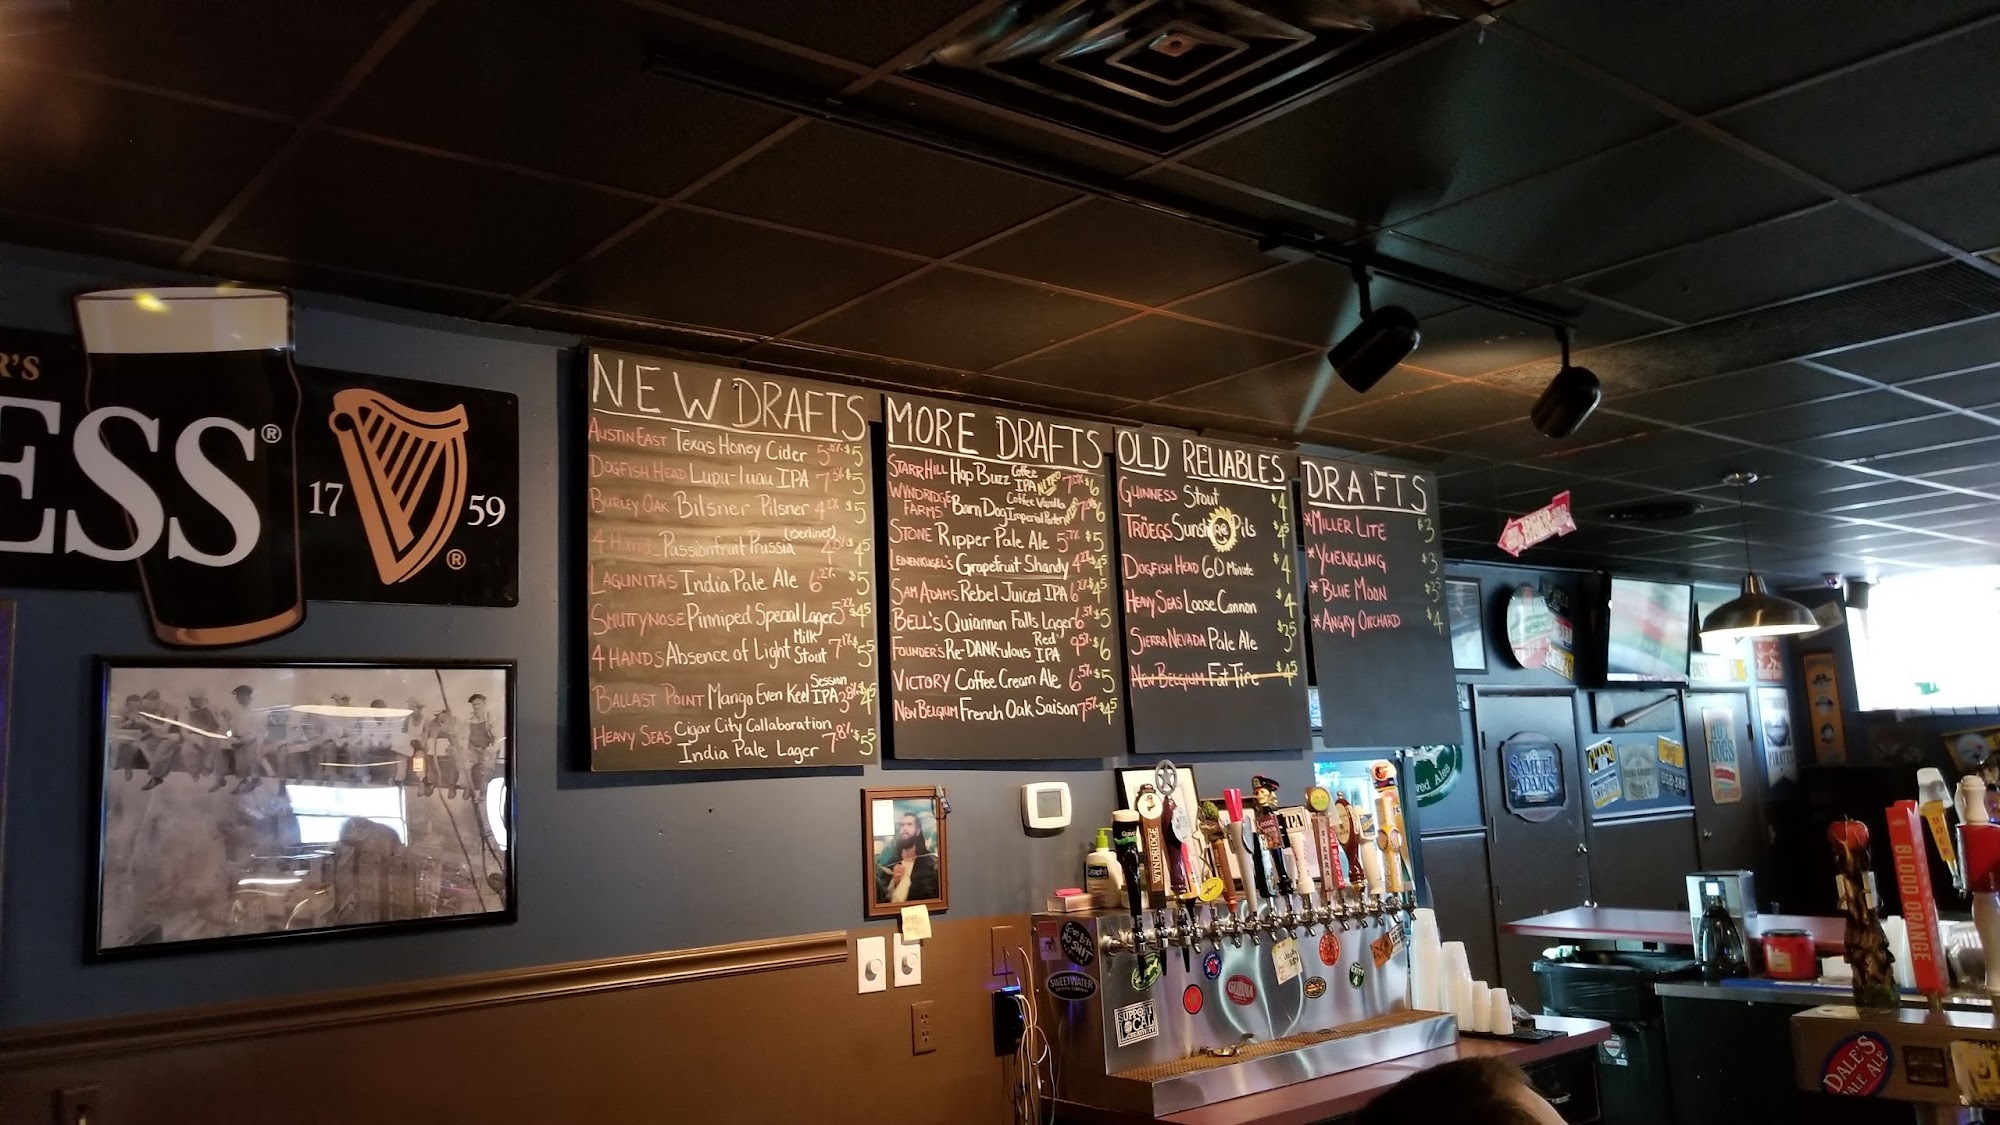 R'S
ESS®
17 59
®
NEW DRAFTS
AUSTIN EAST Texas Honey Cider 5.0% $5
DOGFISH HEAD Lupu-luau IPA 7.3% $5
BURLEY OAK Bilsner Pilsner 4.2% $5
4 Hands Passionfruit Prussia (berliner) 4.0% $45
LAGUNITAS India Pale Ale 6.2% $5
SMUTTYNOSE Pinniped Special Lager 5.2% $45
4 HANDS Absence of Light Milk Stout 7.1% $55
BALLAST POINT Mango Even Keel Session IPA 3.8% $45
HEAVY SEAS Cigar City Collaboration
India Pale Lager 7.8% $55
MORE DRAFTS
STARR HILL Hop Buzz Coffee IPA NITRO 7.0% $6
WYNDRIDGE FARMS Barn Dog Coffee Vanilla Imperial Porter 7.0% $6
STONE Ripper Pale Ale 5.7% $5
LEINENKUGEL'S Grapefruit Shandy 4.2% $45
SAM ADAMS Rebel Juiced IPA 6.2% $45
BELL'S Quiannon Falls Lager 6.5% $5
FOUNDER'S Re-DANK-ulous Red IPA 9.5% $6
VICTORY Coffee Cream Ale 6.5% $5
NEW BELGIUM French Oak Saison 7.5% $45
OLD RELIABLES
GUINNESS Stout $4
TRÖEGS Sunshine Pils $45
DOGFISH HEAD 60 Minute $4
HEAVY SEAS Loose Cannon $4
SIERRA NEVADA Pale Ale $35
NEW BELGIUM Fat Tire $45
DRAFTS
*MILLER LITE $3
*YUENGLING $3
*BLUE MOON $35
*ANGRY ORCHARD $4
SAMUEL ADAMS
HOT DOGS
PIRATES
WYNDRIDGE
IPA
SIERRA
SWEETWATER
GUBNA
SUPPORT LOCAL
BLOOD ORANGE
DALE'S PALE ALE